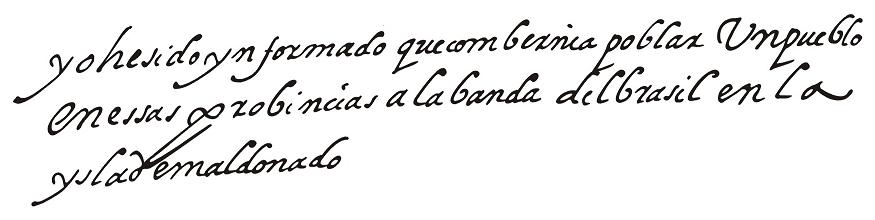 yo he sido ynformado que combernia poblar Un pueblo
en essas probincias a la banda del brasil en la
ysla de maldonado